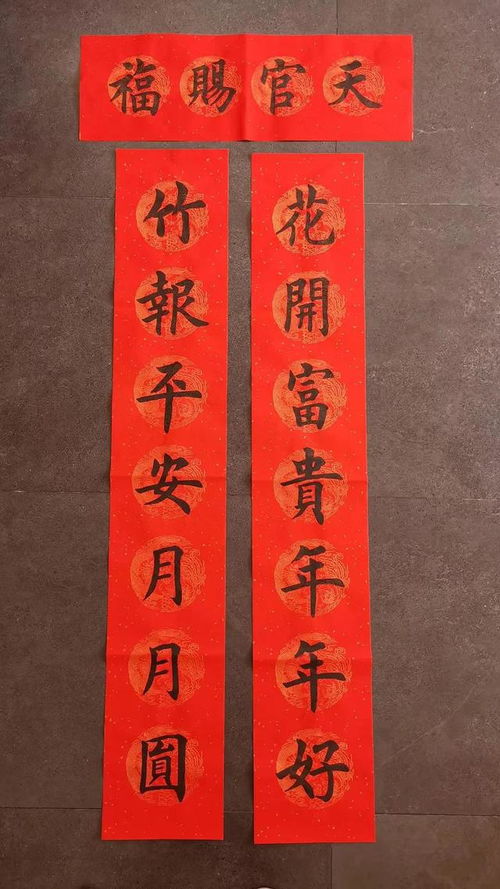 天官賜福
花開富貴年年好
竹報平安月月圓